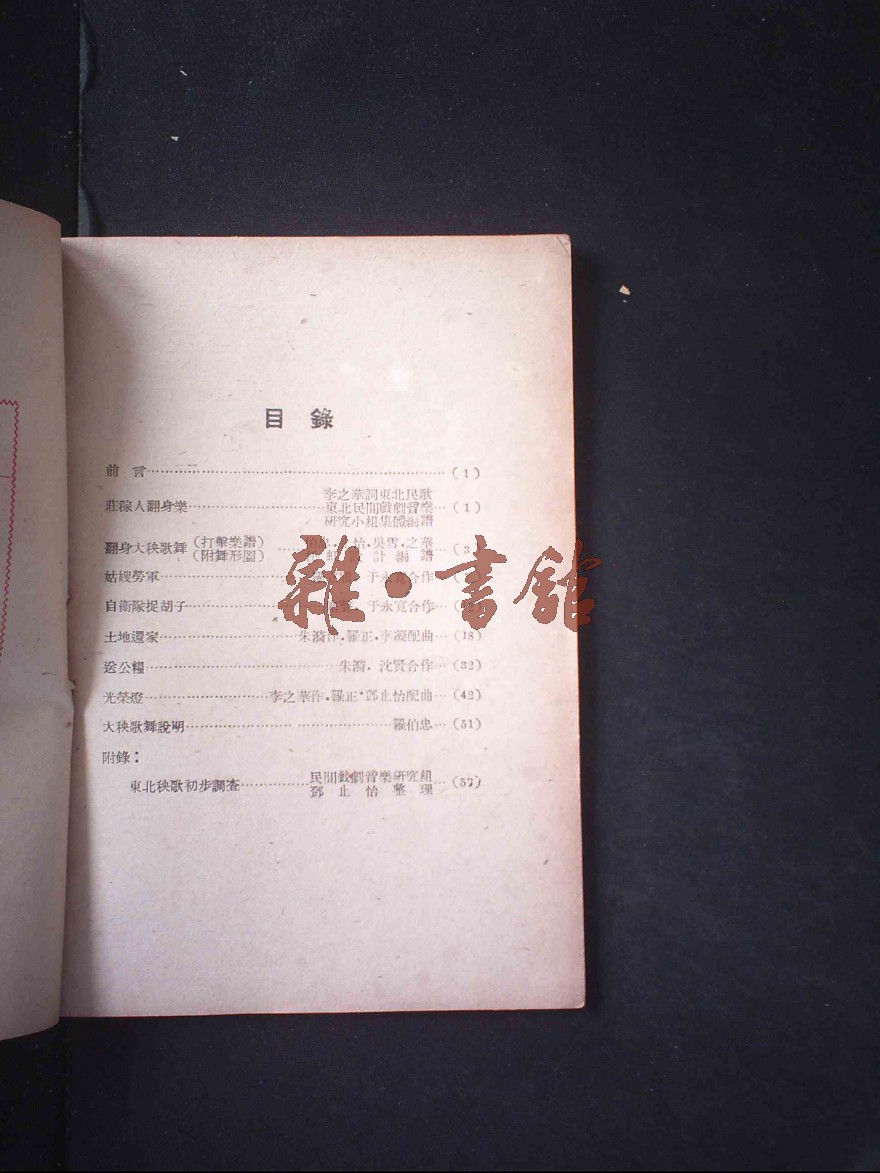 目錄
前言 (1)
莊稼人翻身樂 李之華詞東北民歌
東北民間戲劇音樂
研究小組集體編譜 (1)
翻身大秧歌舞 (打擊樂譜)
(附舞形圖) 怡·吳雪·之華
計編譜 (3)
姑嫂勞軍 于永寬合作
自衛隊捉胡子 于永寬合作
土地還家 朱漪作·羅正·李凝配曲 (18)
送公糧 朱漪·沈賢合作 (32)
光榮燈 李之華作·羅正·鄧止怡配曲 (42)
大秧歌舞說明 羅伯忠 (51)
附錄：
東北秧歌初步調查 民間戲劇音樂研究組
鄧止怡整理 (57)
雜·書館